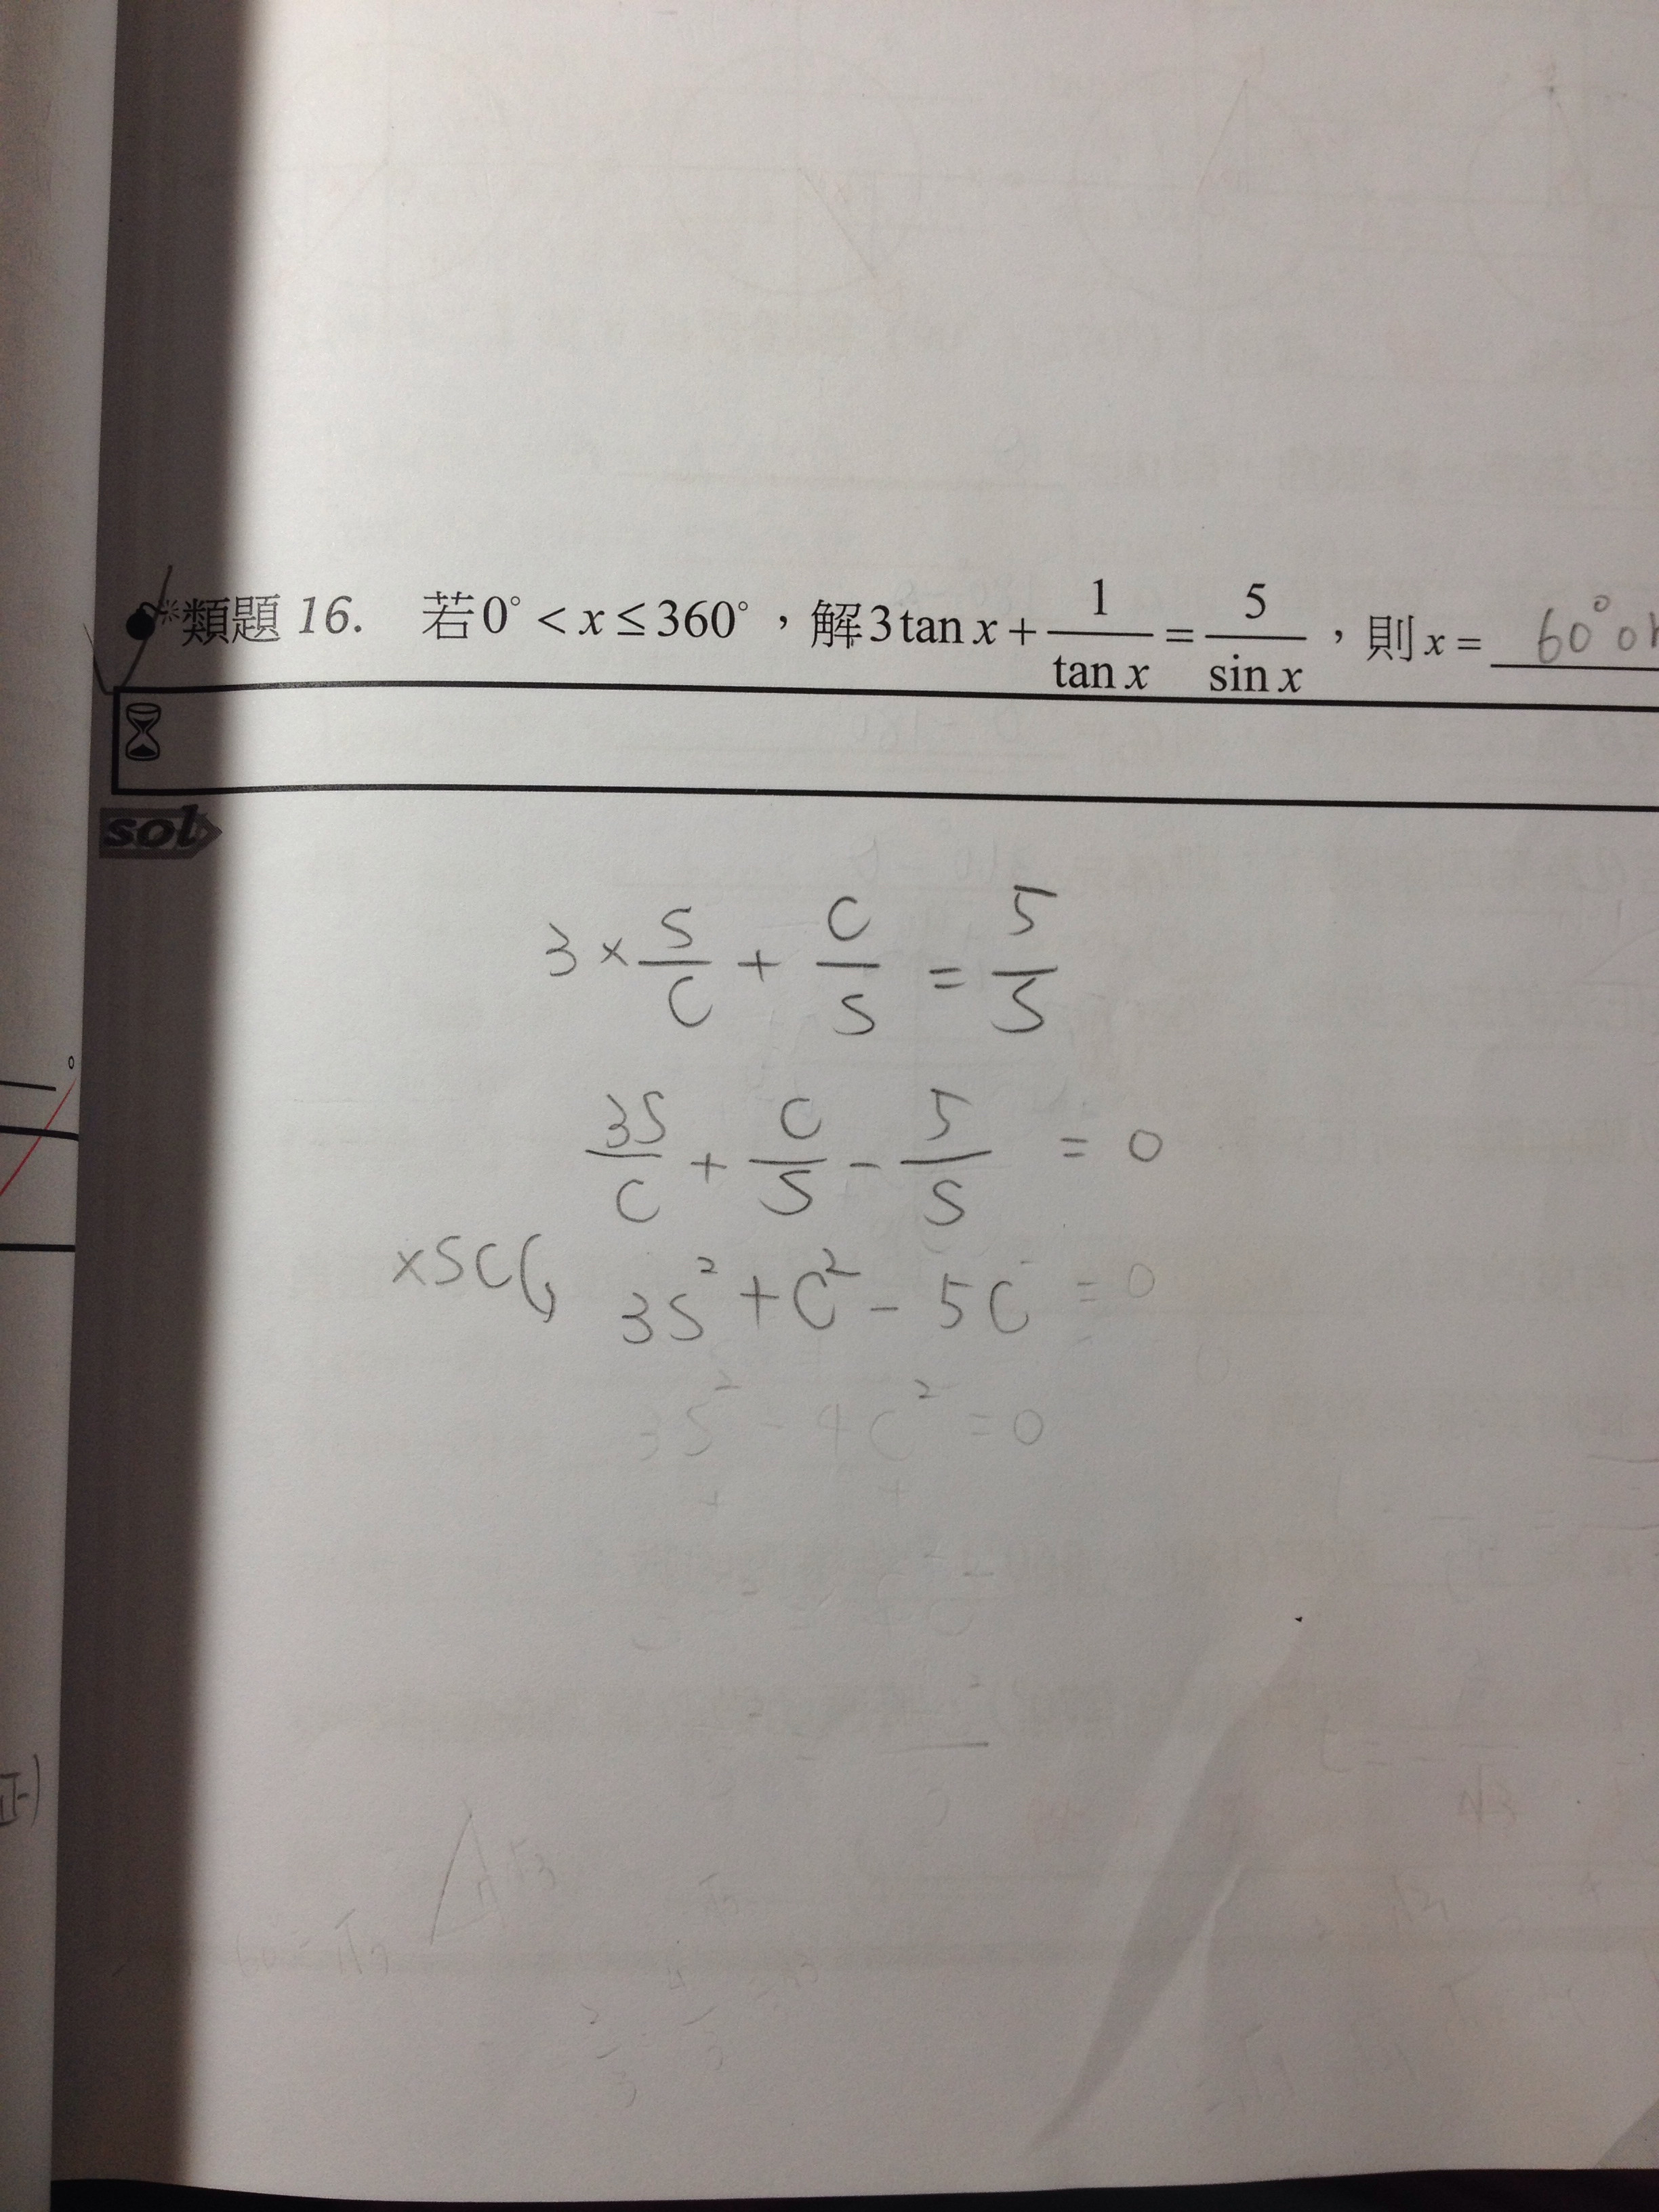 *類題 16. 若 0° < x ≤ 360°，解 3 tan x + 1/tan x = 5/sin x，則 x = 60° or
sol
3 × S/C + C/S = 5/S
3S/C + C/S - 5/S = 0
×SC( 3S² + C² - 5C = 0
3S² - 4C² = 0